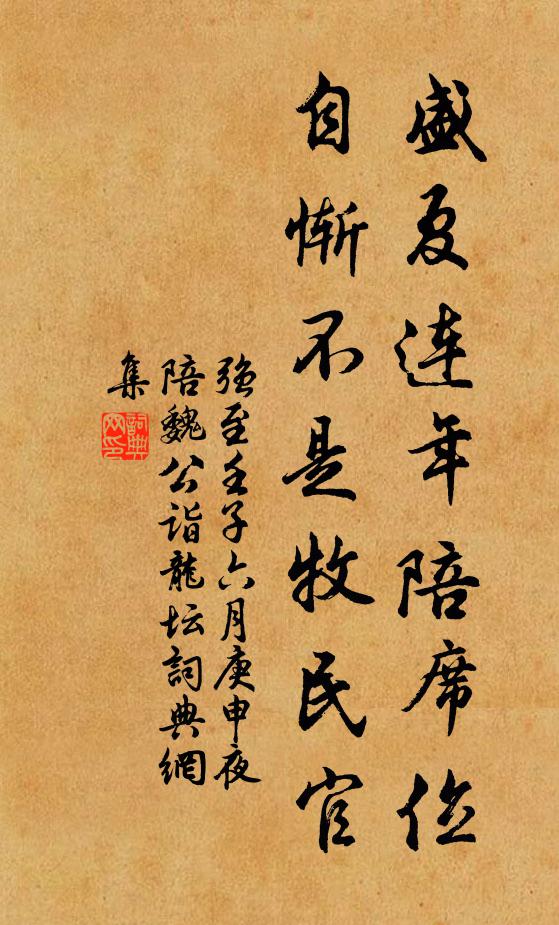 盛夏連年陪席位
自慚不是牧民官
強至壬子六月庚申夜
陪魏公詣龍坛詞典網
集
詞典
网印